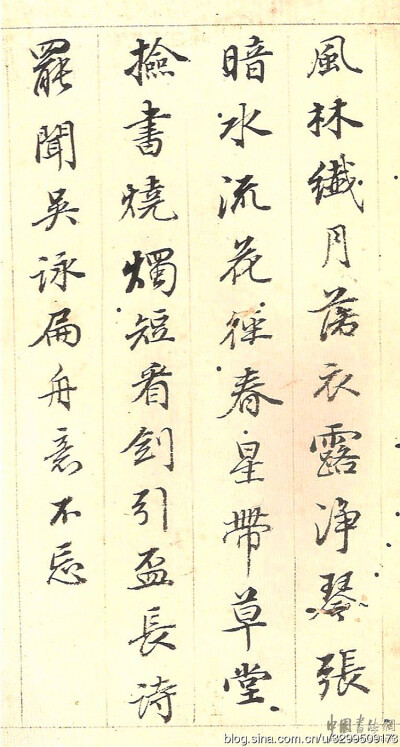 風林纖月落衣露浄琴張
暗水流花徑春星帶草堂
撿書燒燭短看劍引盃長詩
罷聞吳詠扁舟意不忘
中國書法網
blog.sina.com.cn/u/3299509173